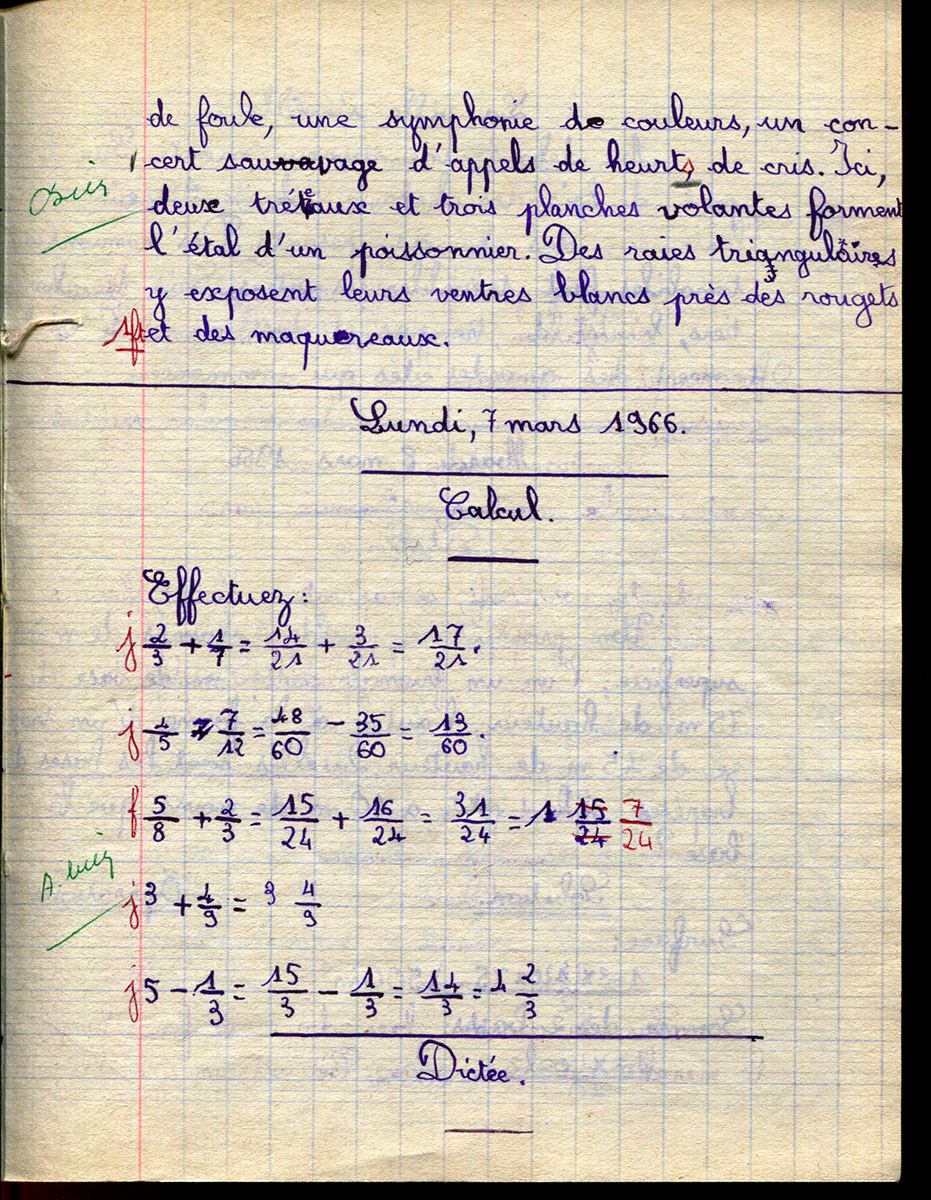 de foule, une symphonie de couleurs, un con-
cert sauvage d'appels de heurts, de cris. Ici,
Bien
deux tréteaux et trois planches volantes forment
l'étal d'un poissonnier. Des raies triangulaires
y exposent leurs ventres blancs près des rougets
1f et des maquereaux.
Lundi, 7 mars 1966.
Calcul.
Effectuez:
j 2/3 + 1/7 = 14/21 + 3/21 = 17/21.
j 4/5 - 7/12 = 48/60 - 35/60 = 13/60.
f 5/8 + 2/3 = 15/24 + 16/24 = 31/24 = 1 15/24 7/24
A. bien
j 3 + 4/9 = 3 4/9
j 5 - 1/3 = 15/3 - 1/3 = 14/3 = 4 2/3
Dictée.